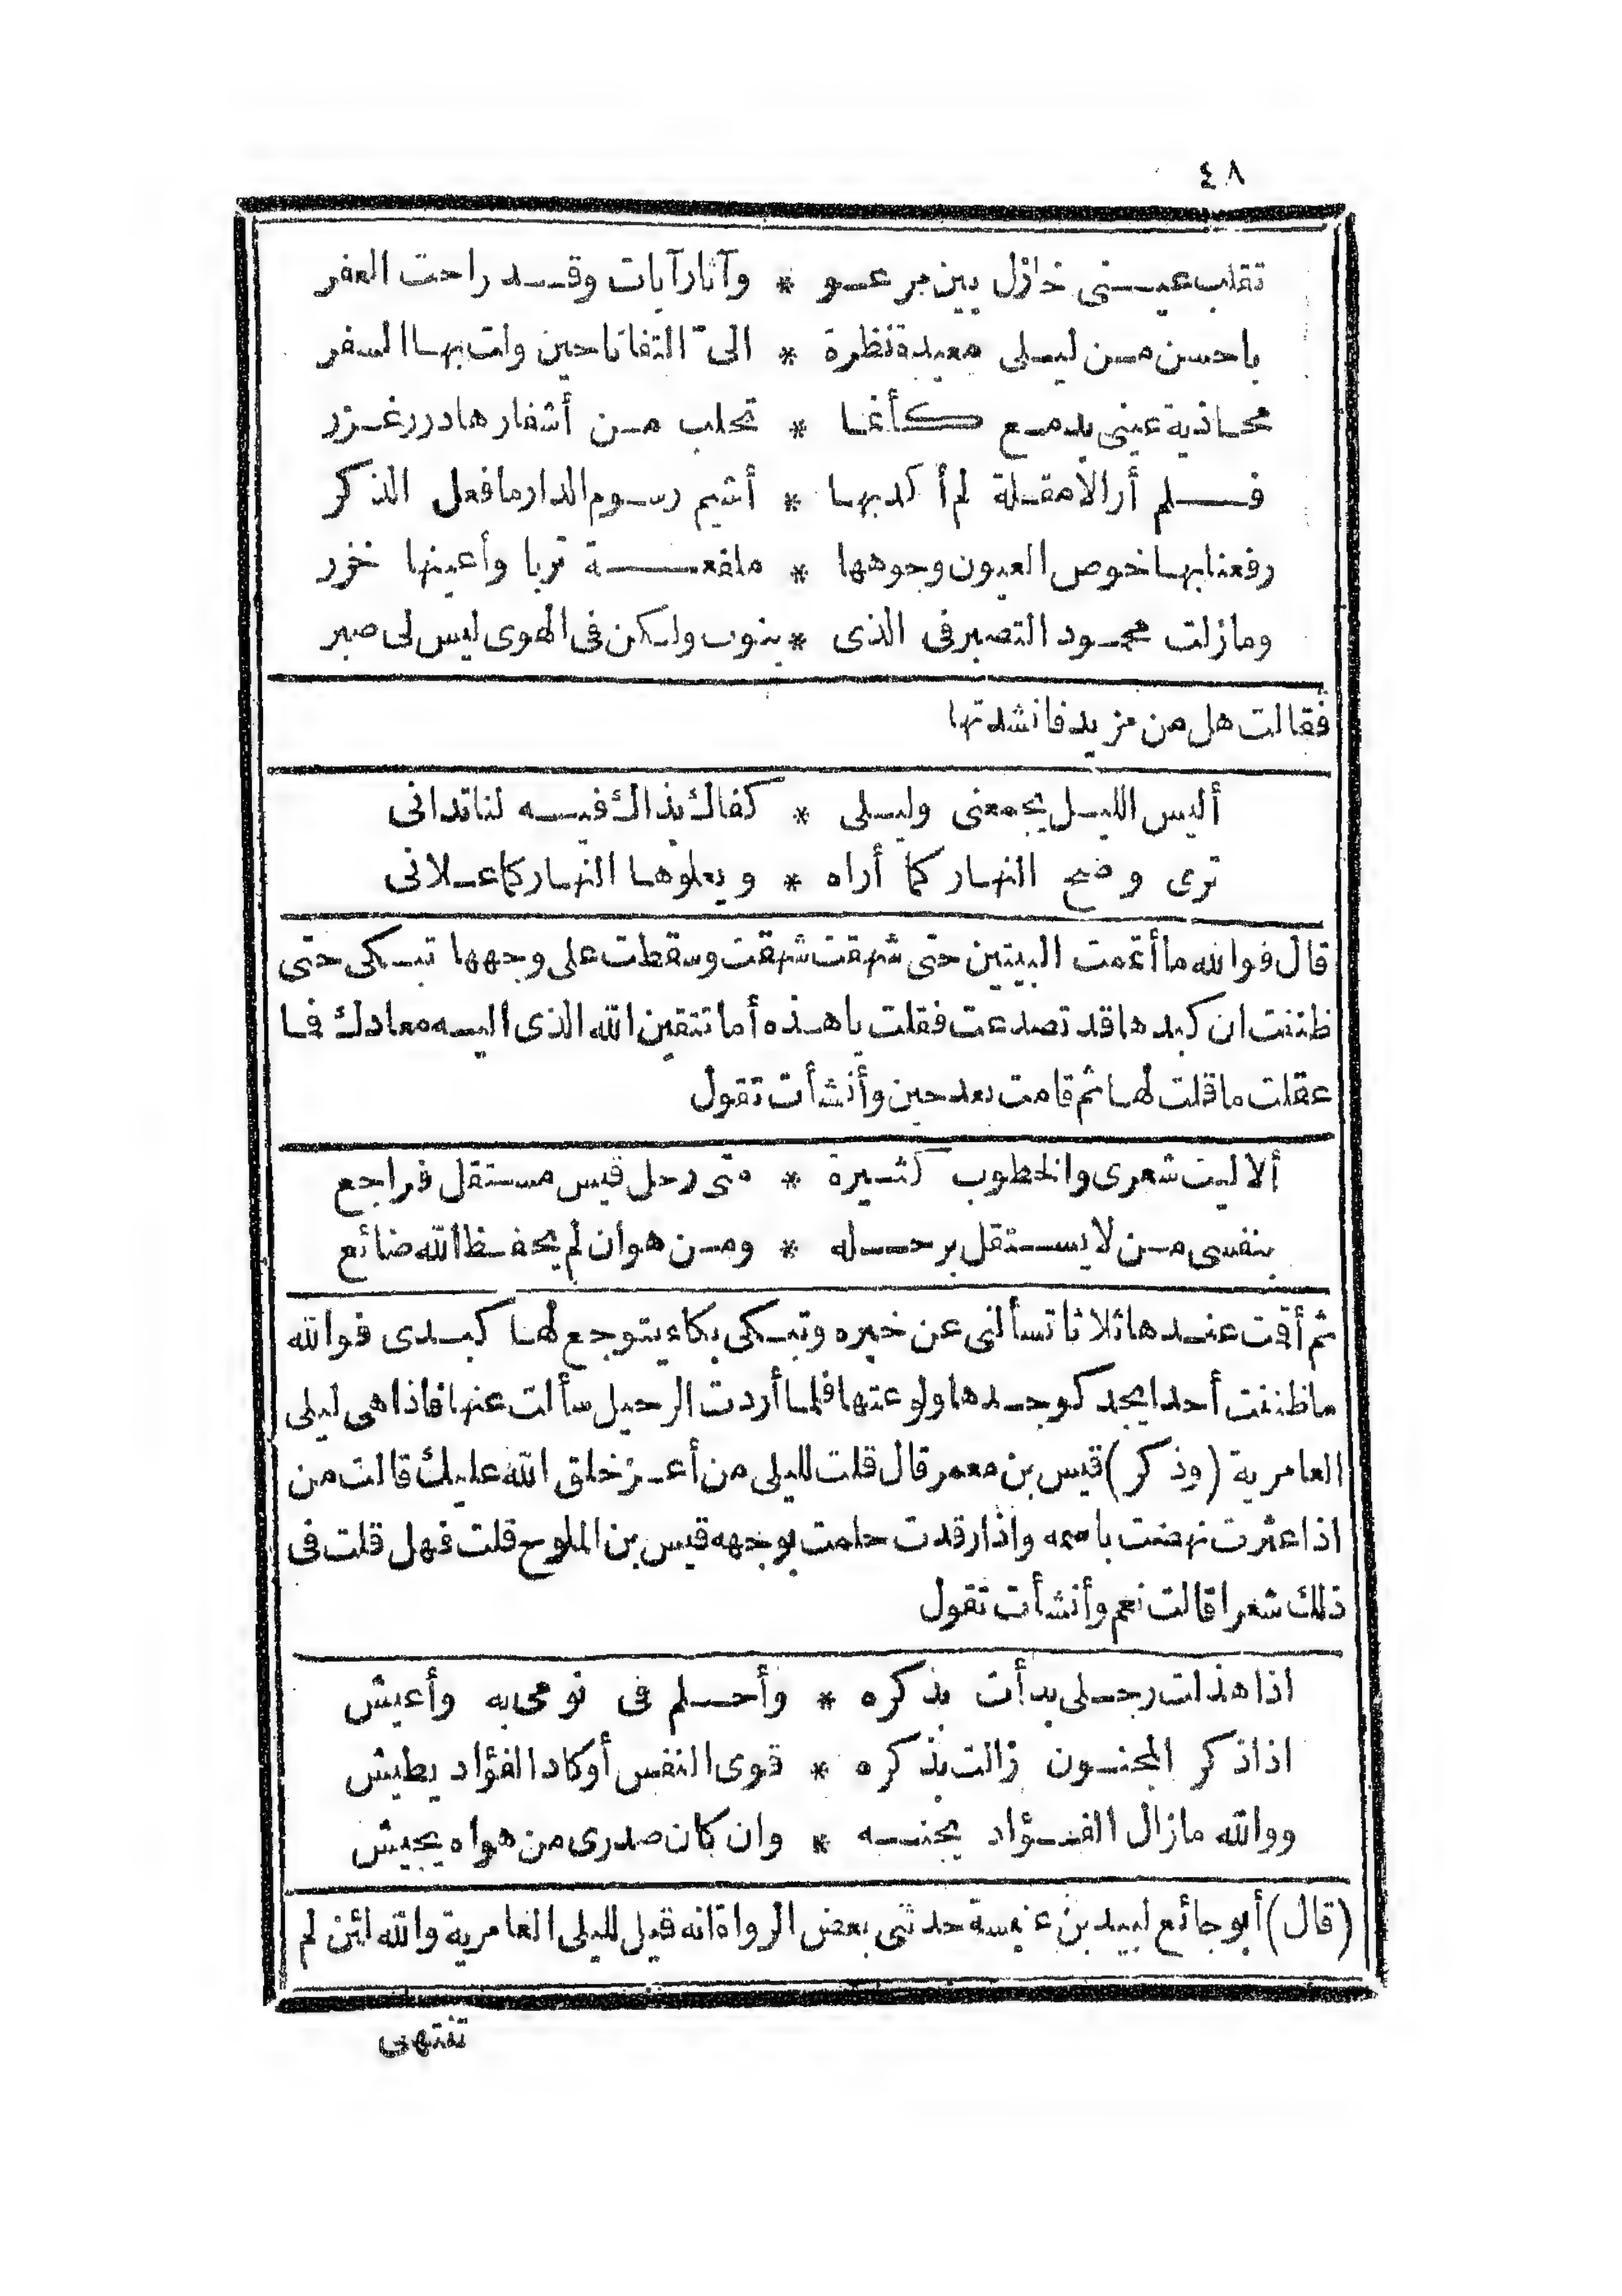 ٤٨
تقلب عيني خاذل بين مرعو * وآثار آيات وقد راحت العفر
باحسن من ليلى معيدة نظرة * الىّ التفاتا حين ولت بها السفر
محاذية عيني بدمع كأنما * تحلب من أشفارها درر غزر
فلم أر الا مقلة لم أكد بها * أشيم رسوم الدار ما فعل الذكر
رفعنا بها خوص العيون وجوهها * ملفعة تربا وأعينها خزر
وما زلت محمود التصبر فى الذى * ينوب ولكن فى الهوى ليس لى صبر
فقالت هل من مزيد فانشدتها
أليس الليل يجمعنى وليلى * كفاك بذاك فيه لنا تدانى
ترى وضح النهار كما أراه * ويعلوها النهار كما علانى
قال فوالله ما أتممت البيتين حتى شهقت شهقت وسقطت على وجهها تبكى حتى
ظننت ان كبدها قد تصدعت فقلت يا هذه أما تتقين الله الذى اليه معادك فما
عقلت ما قلت لها ثم قامت بعد حين وأنشأت تقول
ألا ليت شعرى والخطوب كثيرة * متى رحل قيس مستقل فراجع
بنفسى من لا يستقل برحله * ومن هو ان لم يحفظ الله ضائع
ثم أقمت عندها ثلاثا تسألنى عن خبره وتبكى بكاء يتوجع لها كبدى فوالله
ما ظننت أحدا يجد كوجدها ولوعتها فلما أردت الرحيل سألت عنها فاذا هى ليلى
العامرية (وذكر) قيس بن معمر قال قلت لليلى من أعز خلق الله عليك قالت من
اذا عثرت نهضت باسمه واذا رقدت حلمت بوجهه قيس بن الملوح قلت فهل قلت فى
ذلك شعرا قالت نعم وأنشأت تقول
اذا هذلت رجلى بدأت بذكره * وأحلم فى نومى به وأعيش
اذا ذكر المجنون زالت بذكره * قوى النفس أو كاد الفؤاد يطيش
ووالله ما زال الفؤاد يجنه * وان كان صدرى من هواه يجيش
(قال) أبو جائع لبيد بن عنبسة حدثنى بعض الرواة انه قيل لليلى العامرية والله لئن لم
تنتهى